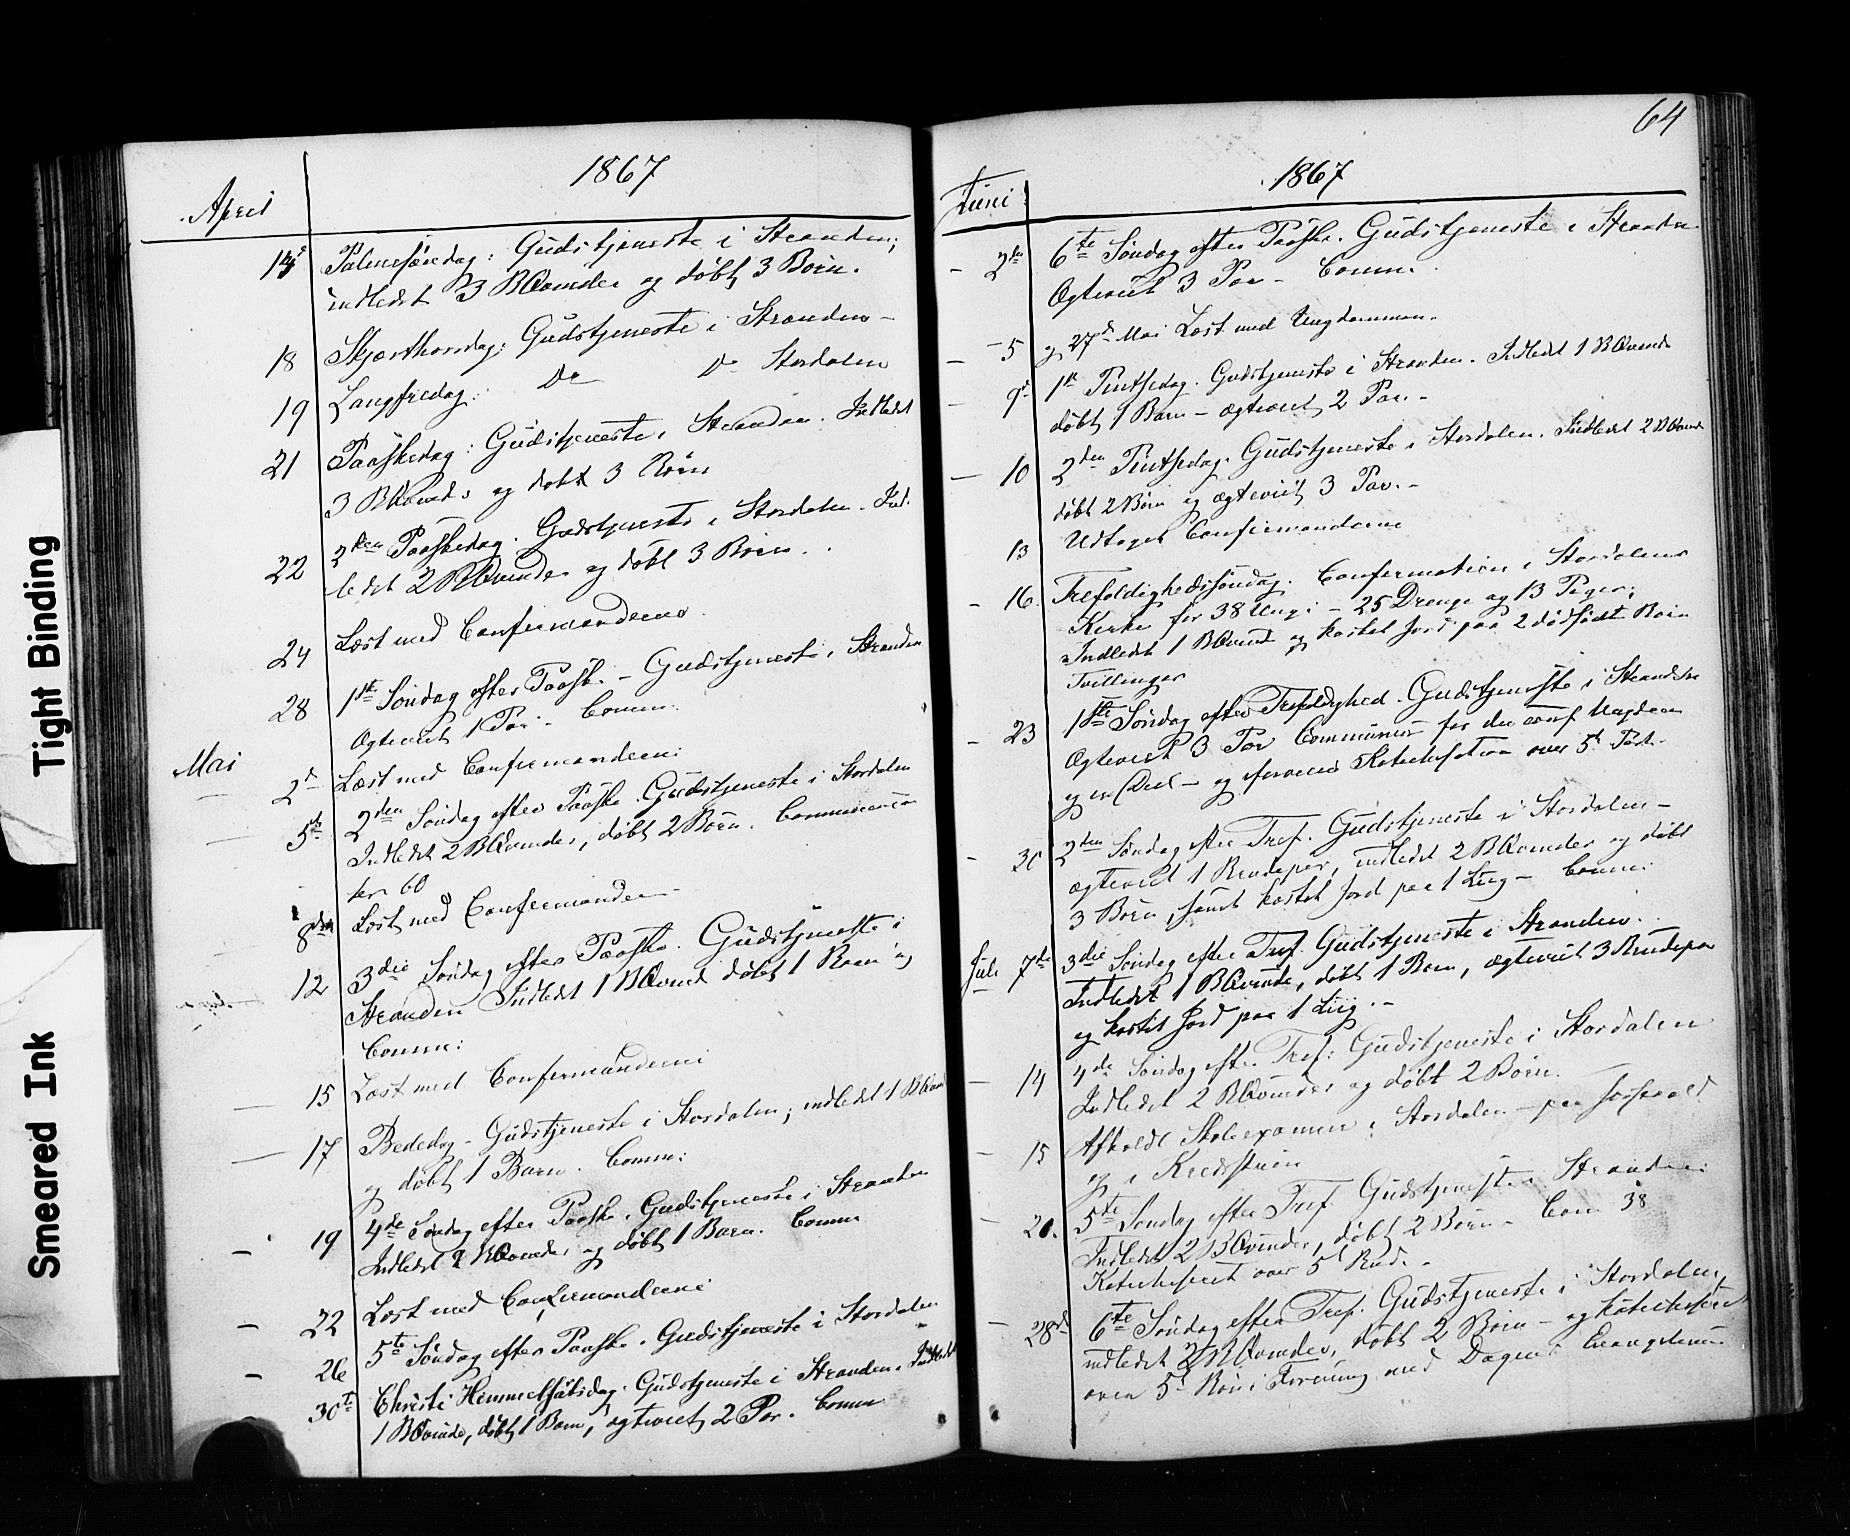 Tight Binding
Smeared Ink
1867
April
14 Palmesøndag: Gudstjeneste i Stranden;
indledet 3 BQvinder og døbt 3 Børn.
18 Skjærthorsdag: Gudstjeneste i Stranden –
19 Langfredag: Do Do Stordalen
21 Paaskedag: Gudstjeneste i Stranden. Indledet
3 BQvinder og døbt 3 Børn
22 2den Paaskedag. Gudstjeneste i Stordalen. Ind-
ledet 2 BQvinder og døbt 3 Børn.
24 Læst med Confirmanderne.
28 1ste Søndag efter Paaske – Gudstjeneste i Stranden
Ægteviet 1 Par – Comm.
Mai
2d Læst med Confirmanderne:
5te 2den Søndag efter Paaske. Gudstjeneste i Stordalen
Indledet 2 BQvinder, døbt 2 Børn. Communican
ter 60
8de Læst med Confirmanderne
12 3die Søndag efter Paaske. Gudstjeneste i
Stranden Indledet 1 BQvind døbt 1 Barn og
Comm:
15 Læst med Confirmanderne
17 Bededag – Gudstjeneste i Stordalen, indledet 1 BQvind
og døbt 1 Barn. Comm:
19 4de Søndag efter Paaske. Gudstjeneste i Stranden
Indledet 2 BQvinder og døbt 1 Barn. Comm
22 Læst med Confirmanderne
26 5te Søndag efter Paaske. Gudstjeneste i Stordalen
30te Christi Himmelfartsdag. Gudstjeneste i Stranden. Indledet
1 BQvinde, døbt 1 Barn, ægteviet 2 Par. Comm
64
1867
Juni
– 2den 6te Søndag efter Paaske. Gudstjeneste i Stranden
Ægteviet 3 Par – Comm.
– 5 og 27d Mai Læst med Ungdommen.
– 9d 1ste Pintsedag. Gudstjeneste i Stranden. Indledet 1 BQvinde
døbt 1 Barn – ægteviet 2 Par. –
– 10 2den Pintsedag. Gudstjeneste i Stordalen. Indledet 2 BQvinde
døbt 2 Børn og ægteviet 3 Par. –
13 Udtaget Confirmanderne
– 16. Trefoldighedssøndag. Confirmation i Stordalens
Kirke for 38 Unge – 25 Drenge og 13 Piger;
Indledet 1 BQvind og kastet Jord paa 2 dødfødt Børn
Tvillinger
– 23 1ste Søndag efter Trefoldighed. Gudstjeneste i Stranden
Ægteviet 3 Par Communion for den conf Ungdom
og en Deel – og over 5t
– 30 2den Søndag efter Tref. Gudstjeneste i Stordalen –
ægteviet 1 Brudepar, indledet 2 BQvinder og døbt
3 Børn, samt kastet Jord paa 1 Liig – Comm:
Juli 7de 3die Søndag efter Tref. Gudstjeneste i Stranden.
Indledet 1 BQvinde, døbt 1 Barn, ægteviet 3 Brudepar
og kastet Jord paa 1 Liig. –
– 14 4de Søndag efter Tref: Gudstjeneste i Stordalen
Indledet 2 BQvinder og døbt 2 Børn.
– 15 Afholdt Skoleexamen i Stordalen – paa
og i
– 21. 5te Søndag efter Tref Gudstjeneste i Stranden:
Indledet 2 BQvinder, døbt 2 Børn – Com 38
Katechiseret over 5t Bud. –
– 28de 6te Søndag efter Tref. Gudstjeneste i Stordalen,
indledet 2 BQvinder, døbt 2 Børn – og katechiseret
over 5t Bøn i Forening med Dagens Evangelium